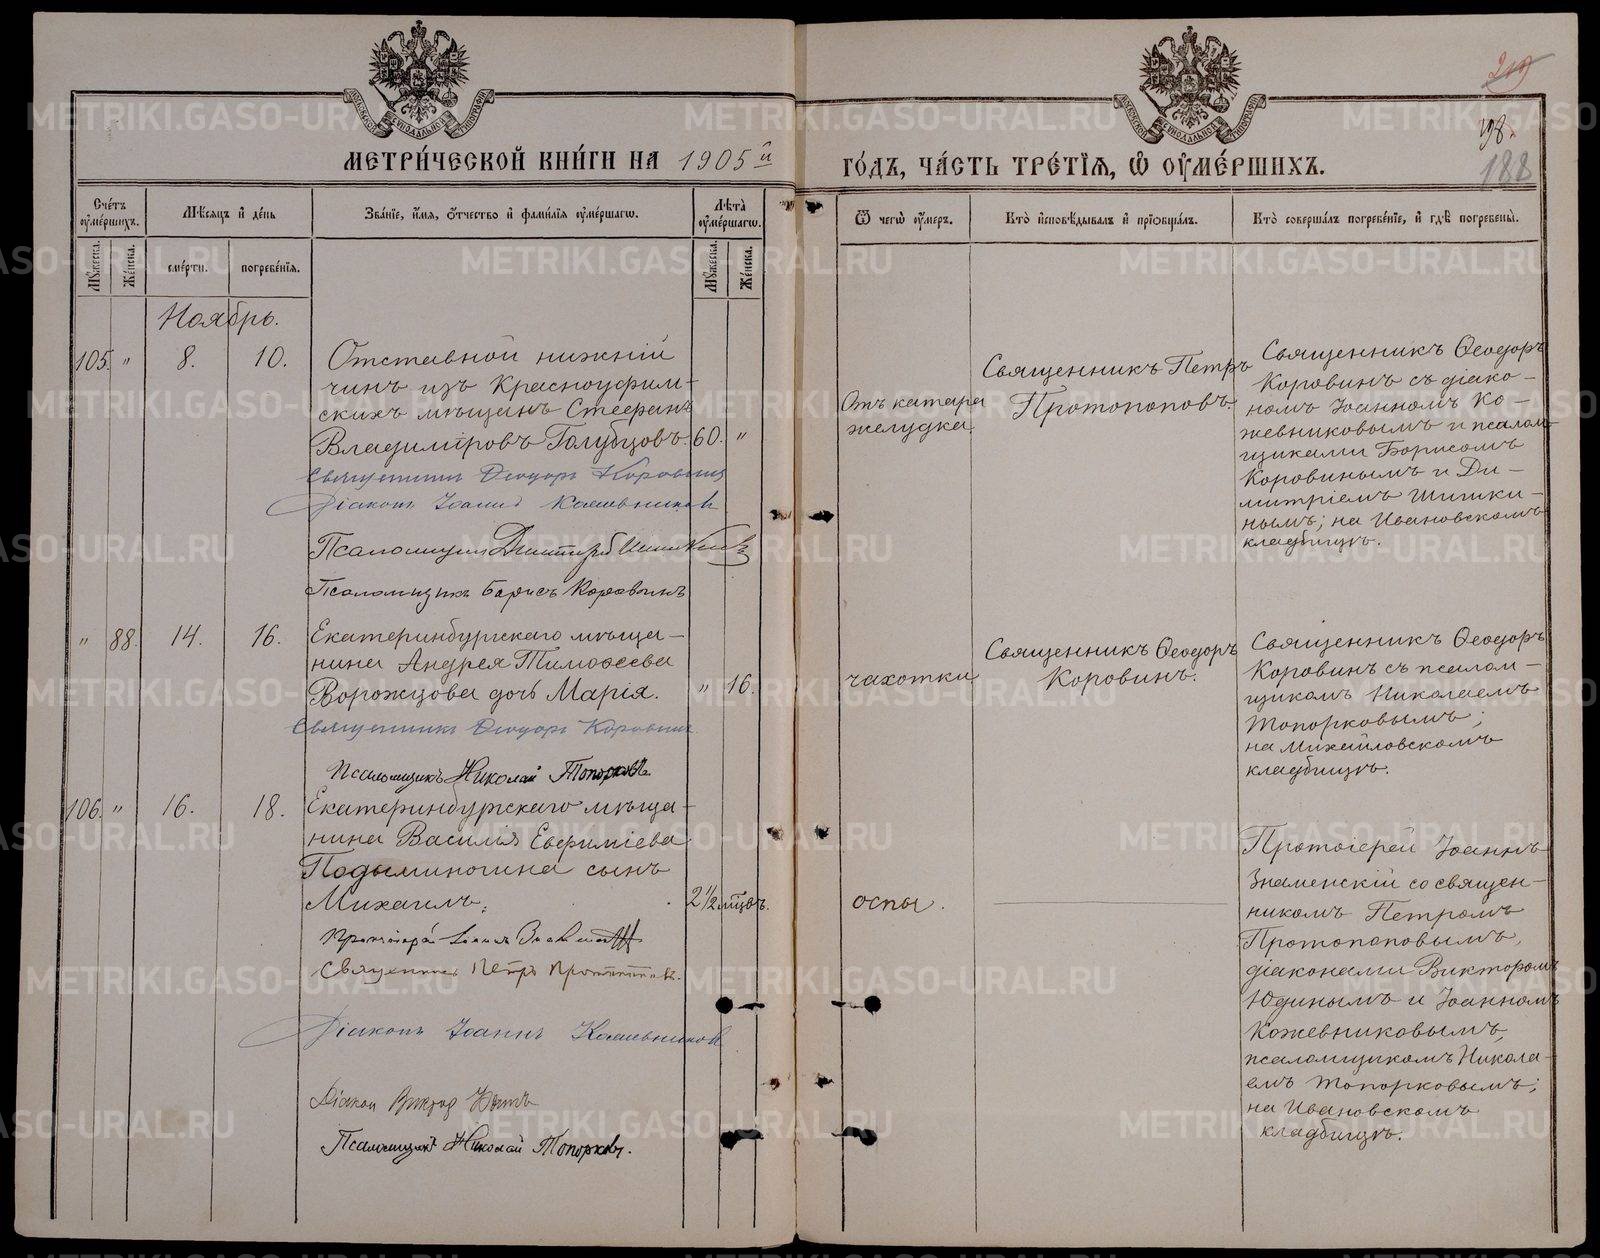 МЕТРИ́ЧЕСКОЙ КНИ́ГИ НА 1905й
ГО́ДЪ, ЧА́СТЬ ТРЕ́ТЇѦ, Ѡ ОУМЕ́РШИХЪ.
219
198.
188
Сче́тъ оуме́ршихъ.
Мꙋжеска.
Же́нска.
Мѣсѧцъ и де́нь
сме́рти.
погребе́нїѧ.
Зва́нїе, и́мѧ, о́тчество и фами́лїѧ оуме́ршагѡ.
Лѣта̀ оуме́ршагѡ.
Мꙋжеска.
Же́нска.
Ѿ чегѡ̀ оу́меръ.
Кто̀ исповѣ́дывалъ и прїѡбща́лъ.
Кто̀ соверша́лъ погребе́нїе, и гдѣ̀ погребены̀.
Ноябрь.
105. " 8. 10.
Отставной нижній
чинъ изъ Красноуфим-
скихъ мѣщанъ Стефанъ
Владиміровъ Голубцовъ. 60. "
Отъ катара
желудка.
Священникъ Петръ
Протопоповъ.
Священникъ Ѳеодоръ
Коровинъ съ діако-
номъ Іоанномъ Ко-
жевниковымъ и псалом-
щиками Борисомъ
Коровинымъ и Ди-
митріемъ Шишки-
нымъ; на Ивановскомъ
кладбищѣ.
Священникъ Ѳеодоръ Коровинъ
Діаконъ Іоаннъ Кожевниковъ
Псаломщикъ Димитрій Шишкинъ
Псаломщикъ Борисъ Коровинъ
" 88. 14. 16.
Екатеринбургскаго мѣща-
нина Андрея Тимоѳеева
Ворожцова дочь Марія. " 16.
чахотки
Священникъ Ѳеодоръ
Коровинъ.
Священникъ Ѳеодоръ
Коровинъ съ псалом-
щикомъ Николаемъ
Топорковымъ;
на Михайловскомъ
кладбищѣ.
Священникъ Ѳеодоръ Коровинъ
Псаломщикъ Николай Топорковъ
106. " 16. 18.
Екатеринбургскаго мѣща-
нина Василія Евфиміева
Подыминогина сынъ
Михаилъ. 2½ мѣ́цовъ.
оспы.
Протоіерей Іоаннъ
Знаменскій со священ-
никомъ Петромъ
Протопоповымъ,
діаконами Викторомъ
Юдинымъ и Іоанномъ
Кожевниковымъ,
псаломщикомъ Никола-
емъ Топорковымъ;
на Ивановскомъ
кладбищѣ.
Протоіерей Іоаннъ Знаменскій
Священникъ Петръ Протопоповъ.
Діаконъ Іоаннъ Кожевниковъ
Діакон Виктор Юдинъ
Псаломщикъ Николай Топорковъ.
METRIKI.GASO-URAL.RU